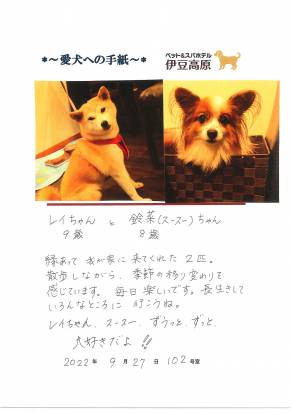 *~愛犬への手紙~*
ペット&スパホテル
伊豆高原
レイちゃん と 鈴菜(スースー)ちゃん
9歳 8歳
縁あって 我が家に 来てくれた 2匹。
散歩しながら、季節の移り変わりを
感じています。毎日楽しいです。長生きして
いろんなところに 行こうね。
レイちゃん、スースー、ずうっと、ずっと、
大好きだよ!!
2022年 9月27日 102号室